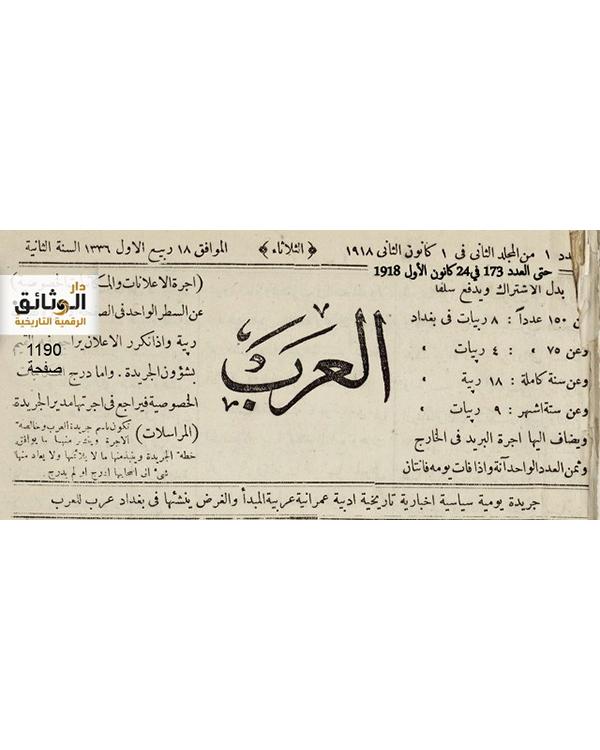 دد ١ من المجلد الثانى فى ١ كانون الثانى ١٩١٨ ﴿ الثلاثاء ﴾ الموافق ١٨ ربيع الاول ١٣٣٦ السنة الثانية
حتى العدد 173 في 24 كانون الأول 1918
بدل الاشتراك ويدفع سلفا
ن ١٥٠ عدداً : ٨ ربيات فى بغداد
وعن ٧٥ » : ٤ ربيات »
وعن سنة كاملة : ١٨ ربية »
وعن ستة اشهر : ٩ ربيات »
ويضاف اليها اجرة البريد فى الخارج
وثمن العدد الواحد آنة واذا فات يومه فانتان
العرب
دار
الوثائق
الرقمية التاريخية
1190
صفحة
(اجرة الاعلانات
عن السطر الواحد فى
ربية واذا تكرر الاعلان
بشؤون الجريدة . واما درج
الخصوصية فيراجع فى اجرتها مدير الجريدة
(المراسلات) تكون باسم جريدة العرب
الاجرة وينشر منها ما يوافق
خطة الجريدة ما لا يلائمها ولا يعاد منها
شىء الى اصحابها ادرج او لم يدرج .
جريدة يومية سياسية اخبارية تاريخية ادبية عمرانية عربية المبدأ والغرض ينشئها فى بغداد عرب للعرب